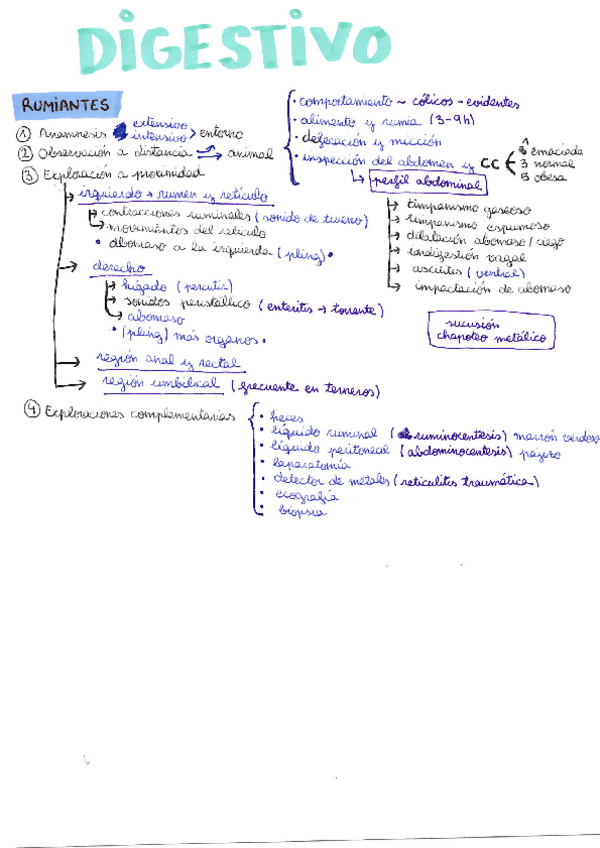 DIGESTIVO
RUMIANTES
① Anamnesis extensivo intensivo > entorno
② Observación a distancia → animal
• comportamiento ~ cólicos - evidentes
• alimento y rumia (3-9h)
• defecación y micción
• inspección del abdomen y CC
1 emaciada
3 normal
5 obesa
↳ perfil abdominal
→ timpanismo gaseoso
→ timpanismo espumoso
→ dilatación abomaso / ciego
→ indigestión vagal
→ ascitis (ventral)
→ impactación de abomaso
sucusión
chapoteo metálico
③ Exploración a proximidad
→ izquierdo → rumen y retículo
→ contracciones ruminales (sonido de trueno)
→ movimientos del retículo
• abomaso a la izquierda (pling) •
→ derecho
→ hígado (percutir)
→ sonidos peristáltico (enteritis → torrente)
→ abomaso
• (pling) más organos •
→ región anal y rectal
→ región umbilical (frecuente en terneros)
④ Exploraciones complementarias
• heces
• líquido ruminal (ruminocentesis) marrón verdoso
• líquido peritoneal (abdominocentesis) pajizo
• laparatomía
• detector de metales (reticulitis traumática)
• ecografía
• biopsia